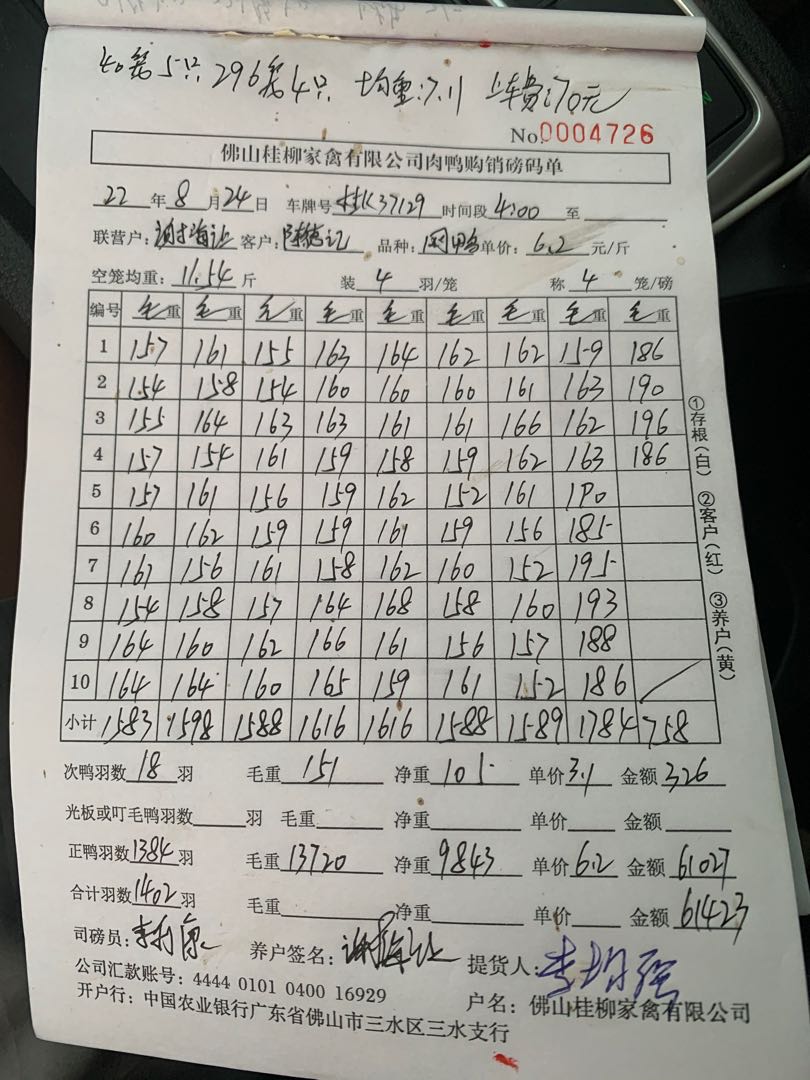 40笼5只 296笼4只 均重:7.11 上车费:70元
No.0004726
佛山桂柳家禽有限公司肉鸭购销磅码单
22年8月24日 车牌号 桂K37129 时间段 4:00 至
联营户: 谢海让 客户: 陈德记 品种: 单价: 6.2 元/斤
空笼均重: 11.54 斤 装 4 羽/笼 称 4 笼/磅
编号 毛重 毛重 毛重 毛重 毛重 毛重 毛重 毛重 毛重
1 157 161 155 163 164 162 162 159 186
2 154 158 154 160 160 160 161 163 190
3 155 164 163 163 161 161 166 162 196
4 157 154 161 159 158 159 162 163 186
5 157 161 156 159 162 152 161 190
6 160 162 159 159 161 159 156 185
7 161 156 161 158 162 160 152 195
8 154 158 157 164 168 158 160 193
9 164 160 162 166 161 156 157 188
10 164 164 160 165 159 161 152 186
小计 1583 1598 1588 1616 1616 1588 1589 1784 758
次鸭羽数 18 羽 毛重 151 净重 105 单价 3.1 金额 326
光板或叮毛鸭羽数 羽 毛重 净重 单价 金额
正鸭羽数 1384 羽 毛重 13720 净重 9843 单价 6.2 金额 61027
合计羽数 1402 羽 毛重 净重 单价 金额 61423
司磅员: 养户签名: 谢海让 提货人: 李均强
公司汇款账号: 4444 0101 0400 16929 户名: 佛山桂柳家禽有限公司
开户行: 中国农业银行广东省佛山市三水区三水支行
①存根(白) ②客户(红) ③养户(黄)